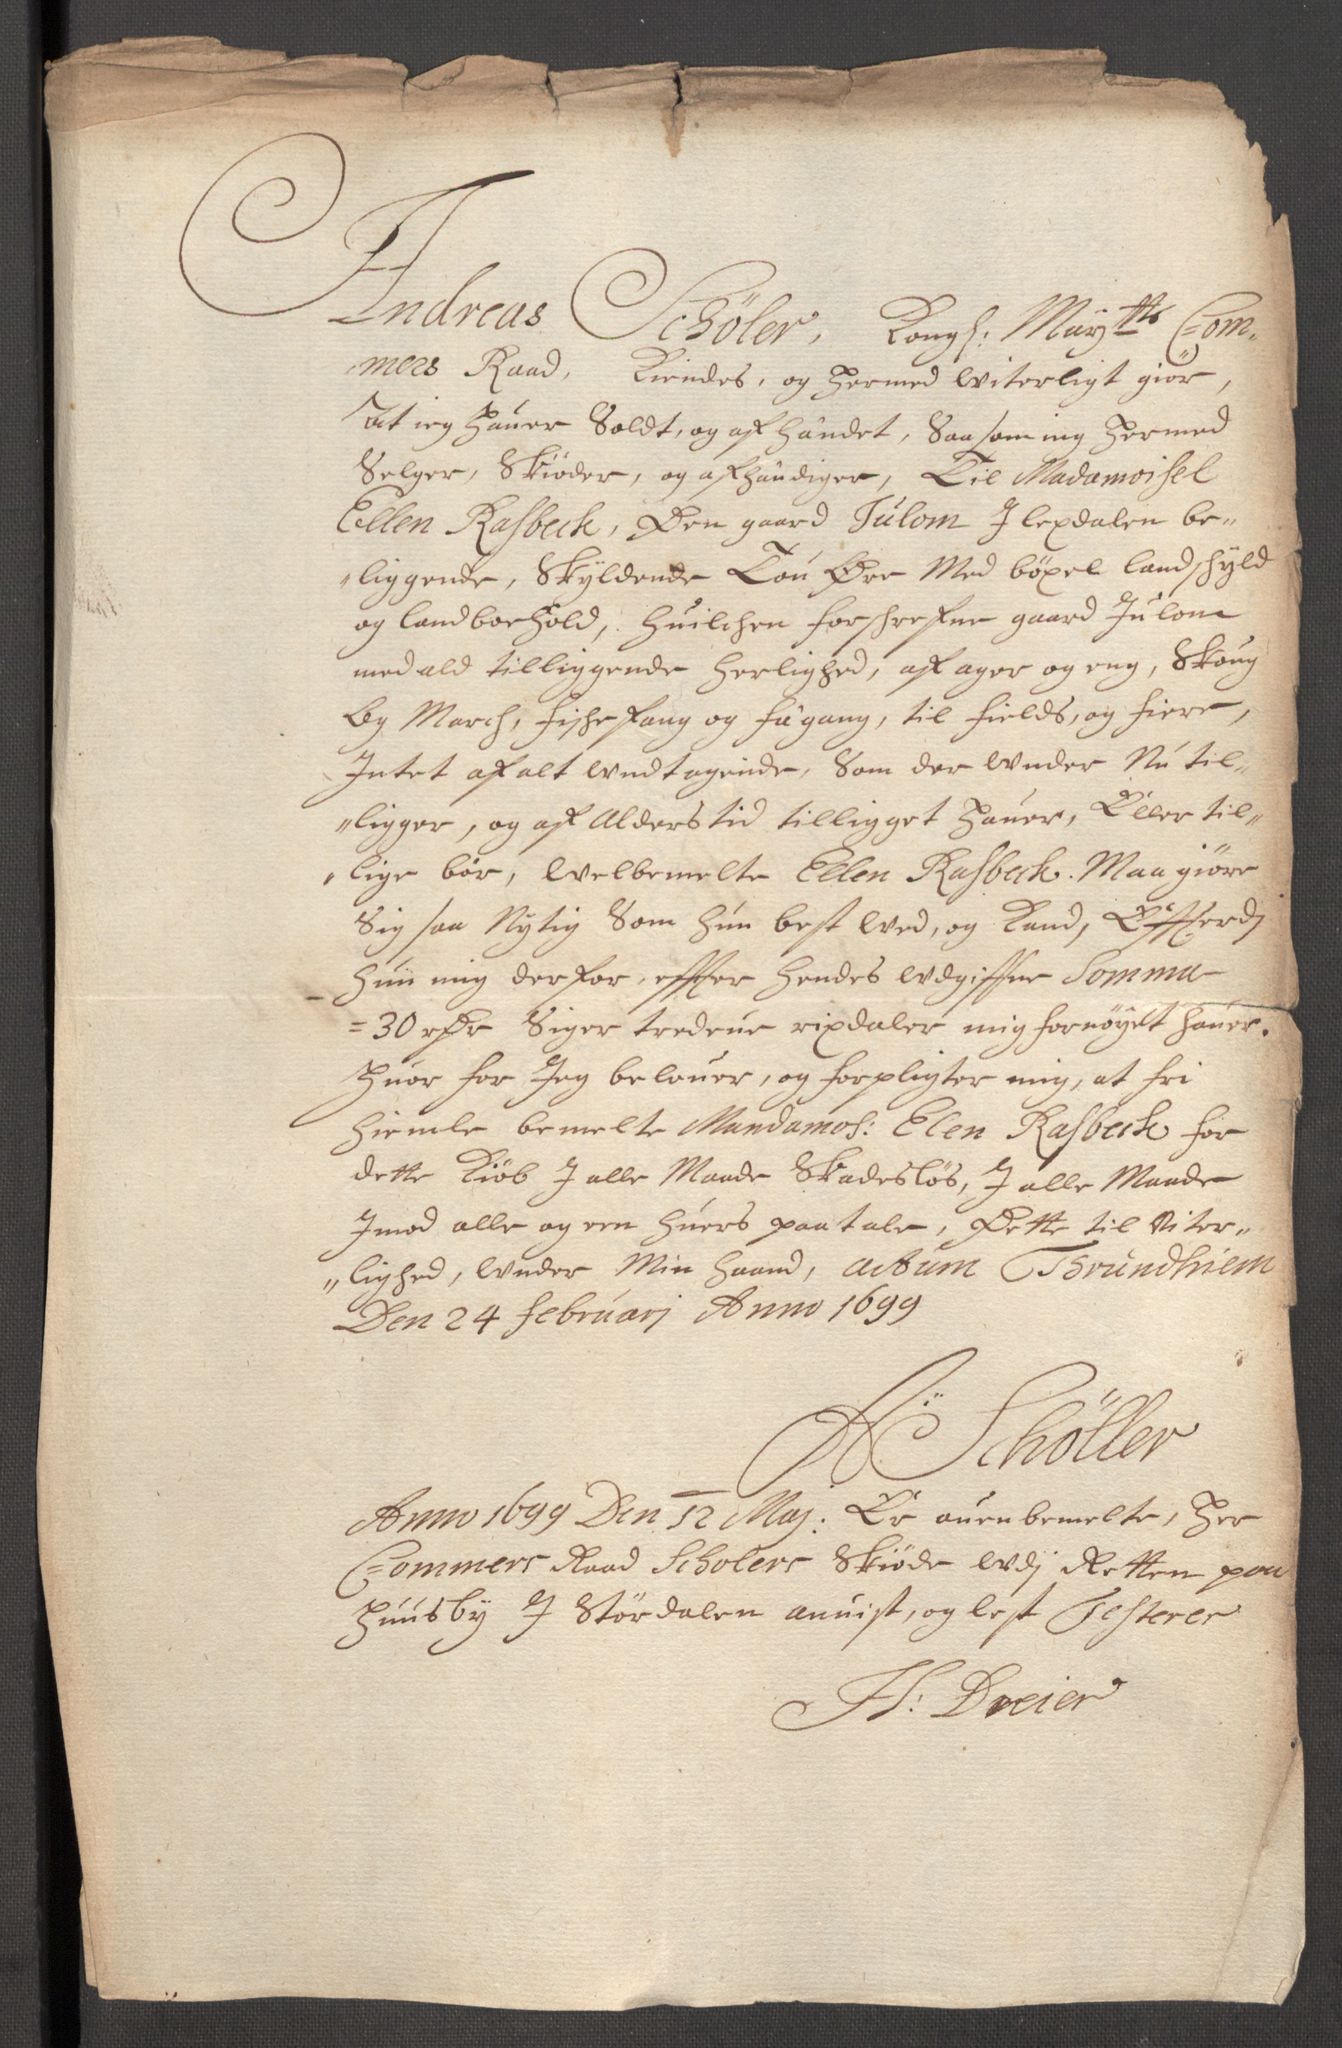 Andreas Schöler, Kongl: Maÿtts Com-
mers Raad, Kiendes, og hermed witerligt giör,
At ieg hauer Soldt, og afhändet, Saasom ieg hermed
Selger, Skiöder, og afhändiger, Til Madamoisel
Ellen Rasbech, Den gaard Julom J lexdalen be-
liggende, Skyldende Tou Øre Med böxel landschyld
og landboehold, huilchen forschrefne gaard Julom
med ald tilliggende herlighed, af ager og eng, Skoug
Og March, fischefang og fägang, til fields, og fiere,
Intet af alt undtagende, Som der under Nu til-
ligger, og af Alders tid tilligget hauer, Eller til-
lige bör, welbemelte Ellen Rasbech. Maa giöre
Sig saa Nytig Som hun best wed, og Kand, Efftterdj
hun mig derfor, effter hendes udgiffne Somma
=30 rdr Siger tredeue rixdaler mig fornöyet hauer.
huor for Jeg belouer, og forpligter mig, at fri
hiemle bemelte Mandamos: Elen Rasbech for
dette Kiöb J alle Maade Skadeslös, J alle Maade
Jmod alle og een huers paatale, Dette til Viter-
lighed, under Min haand, actum Thrundhiem
Den 24 februarj Anno 1699
A: Schöller
Anno 1699 Den 12 Maj: Er ouenbemelte, Her
Commerc Raad Scholers Skiöde udj Retten paa
Huusby J Stördalen anuist, og lest Testerer
H: Dreier